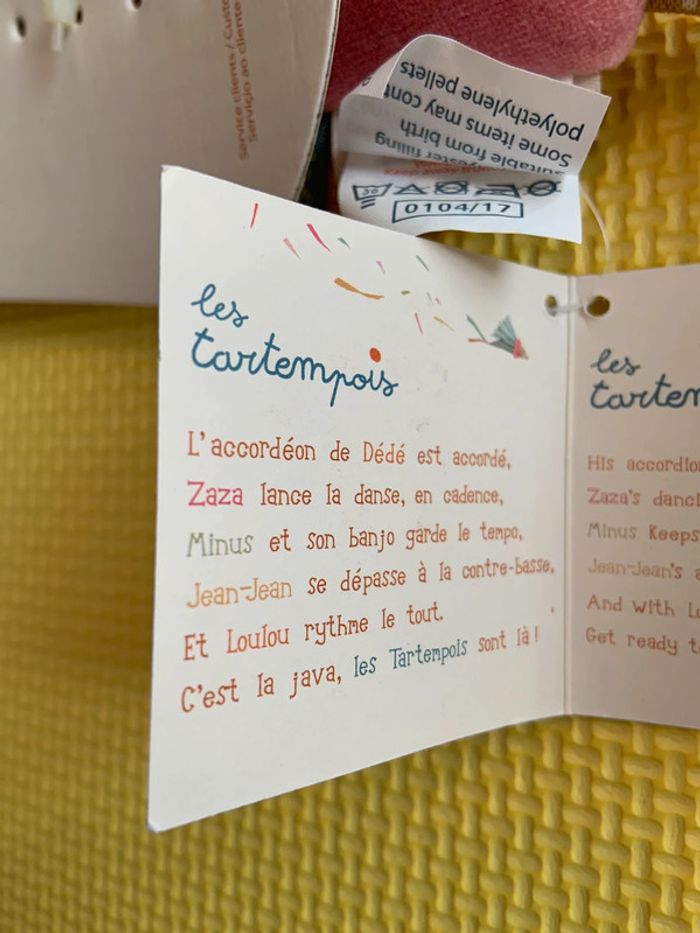 Service clients / Custo
Serviço ao cliente
polyethylene pellets
Some items may cont
suitable from birth
yester filling
30
0104/17
les
tartempois
L'accordéon de Dédé est accordé,
Zaza lance la danse, en cadence,
Minus et son banjo garde le tempo,
Jean-Jean se dépasse à la contre-basse,
Et Loulou rythme le tout.
C'est la java, les Tartempois sont là !
les
tartem
His accordio
Zaza's danci
Minus Keeps
Jean-Jean's a
And with Lo
Get ready t